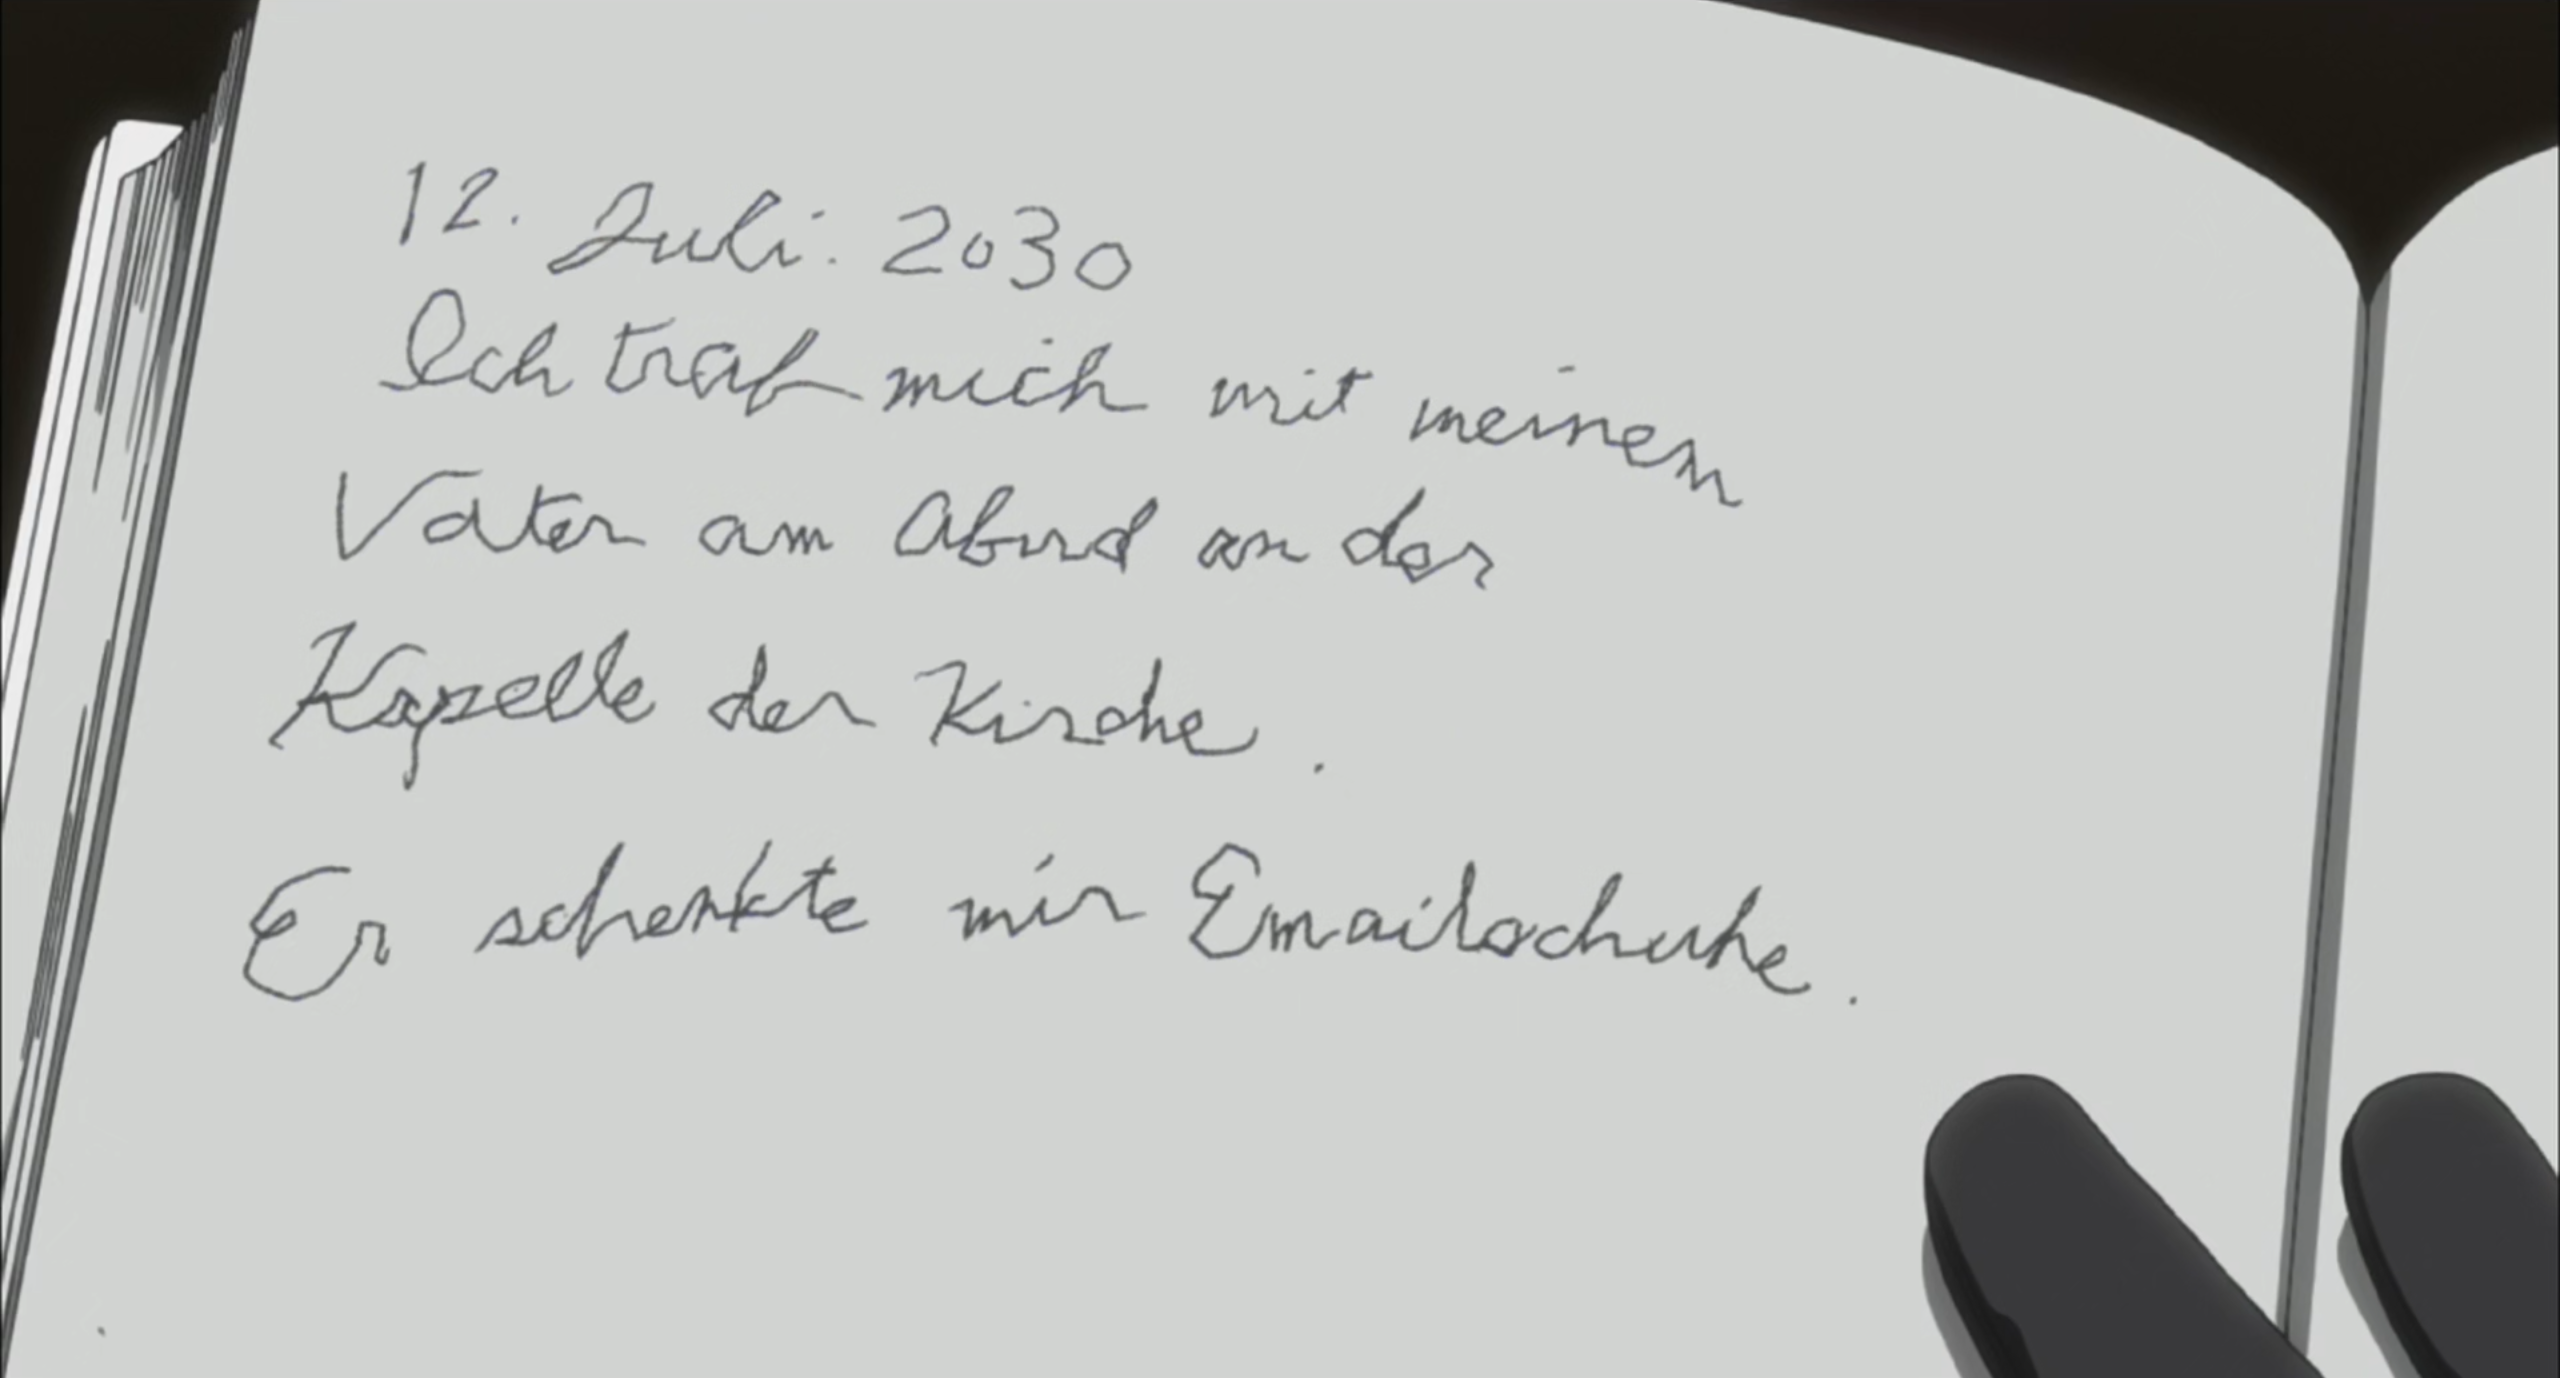 12. Juli. 2030
Ich traf mich mit meinem
Vater am Abend an der
Kapelle der Kirche.
Er schenkte mir Emailschuhe.